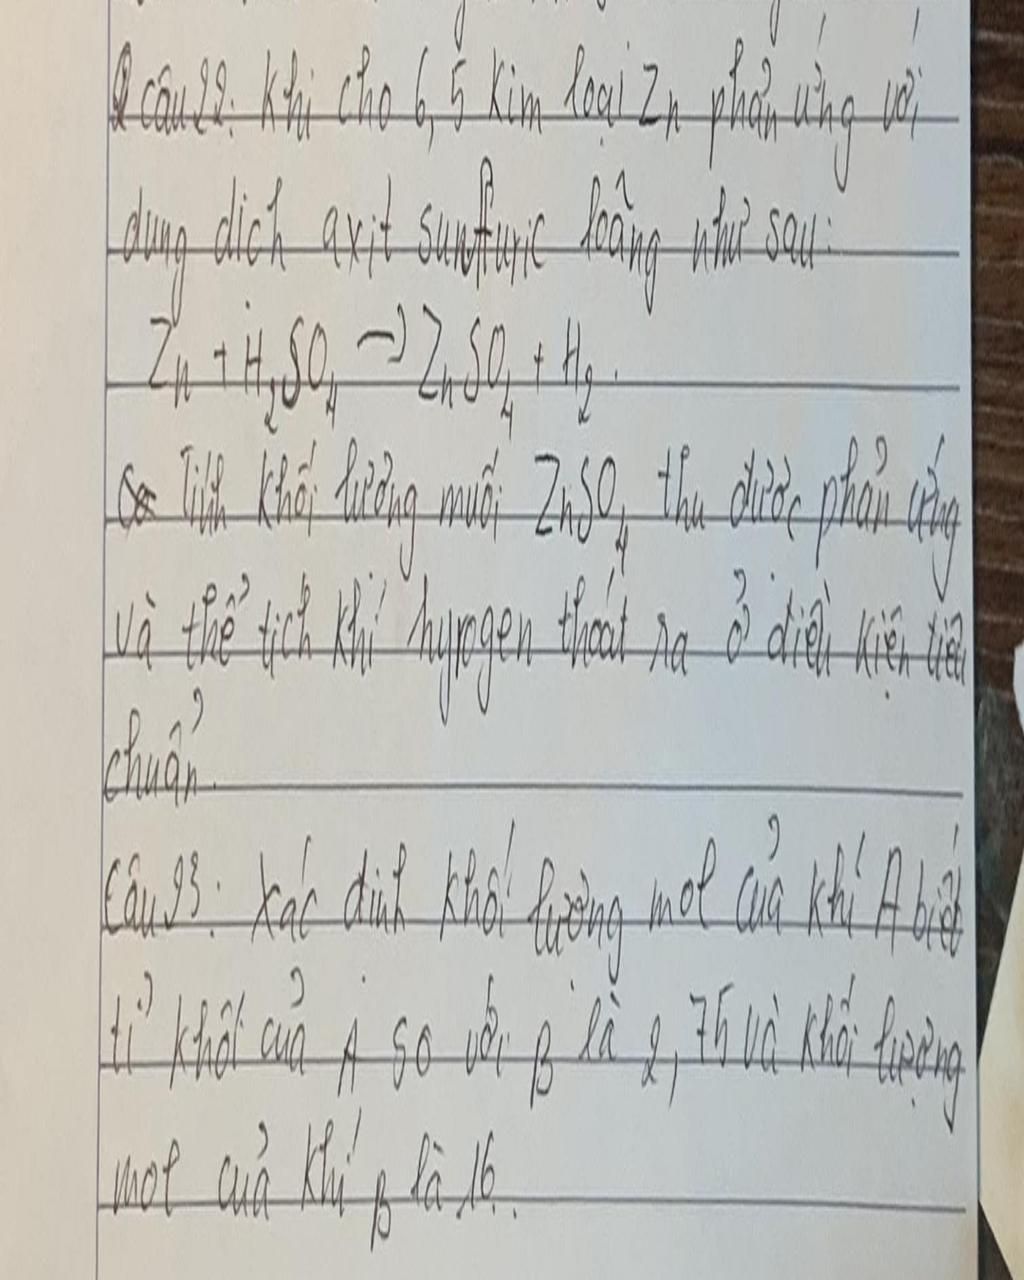 câu 22: Khi cho 6,5 kim loại Zn phản ứng với
dung dịch axit sunffuric loãng như sau:
Zn + H₂SO₄ → ZnSO₄ + H₂.
Tính khối lượng muối ZnSO₄ thu được phản ứng
và thể tích khí hyrogen thoát ra ở điều kiện tiêu
chuẩn.
Câu 23: Xác định khối lượng mol của khí A biết
tỉ khối của A so với B là 2,75 và khối lượng
mol của khí B là 16.